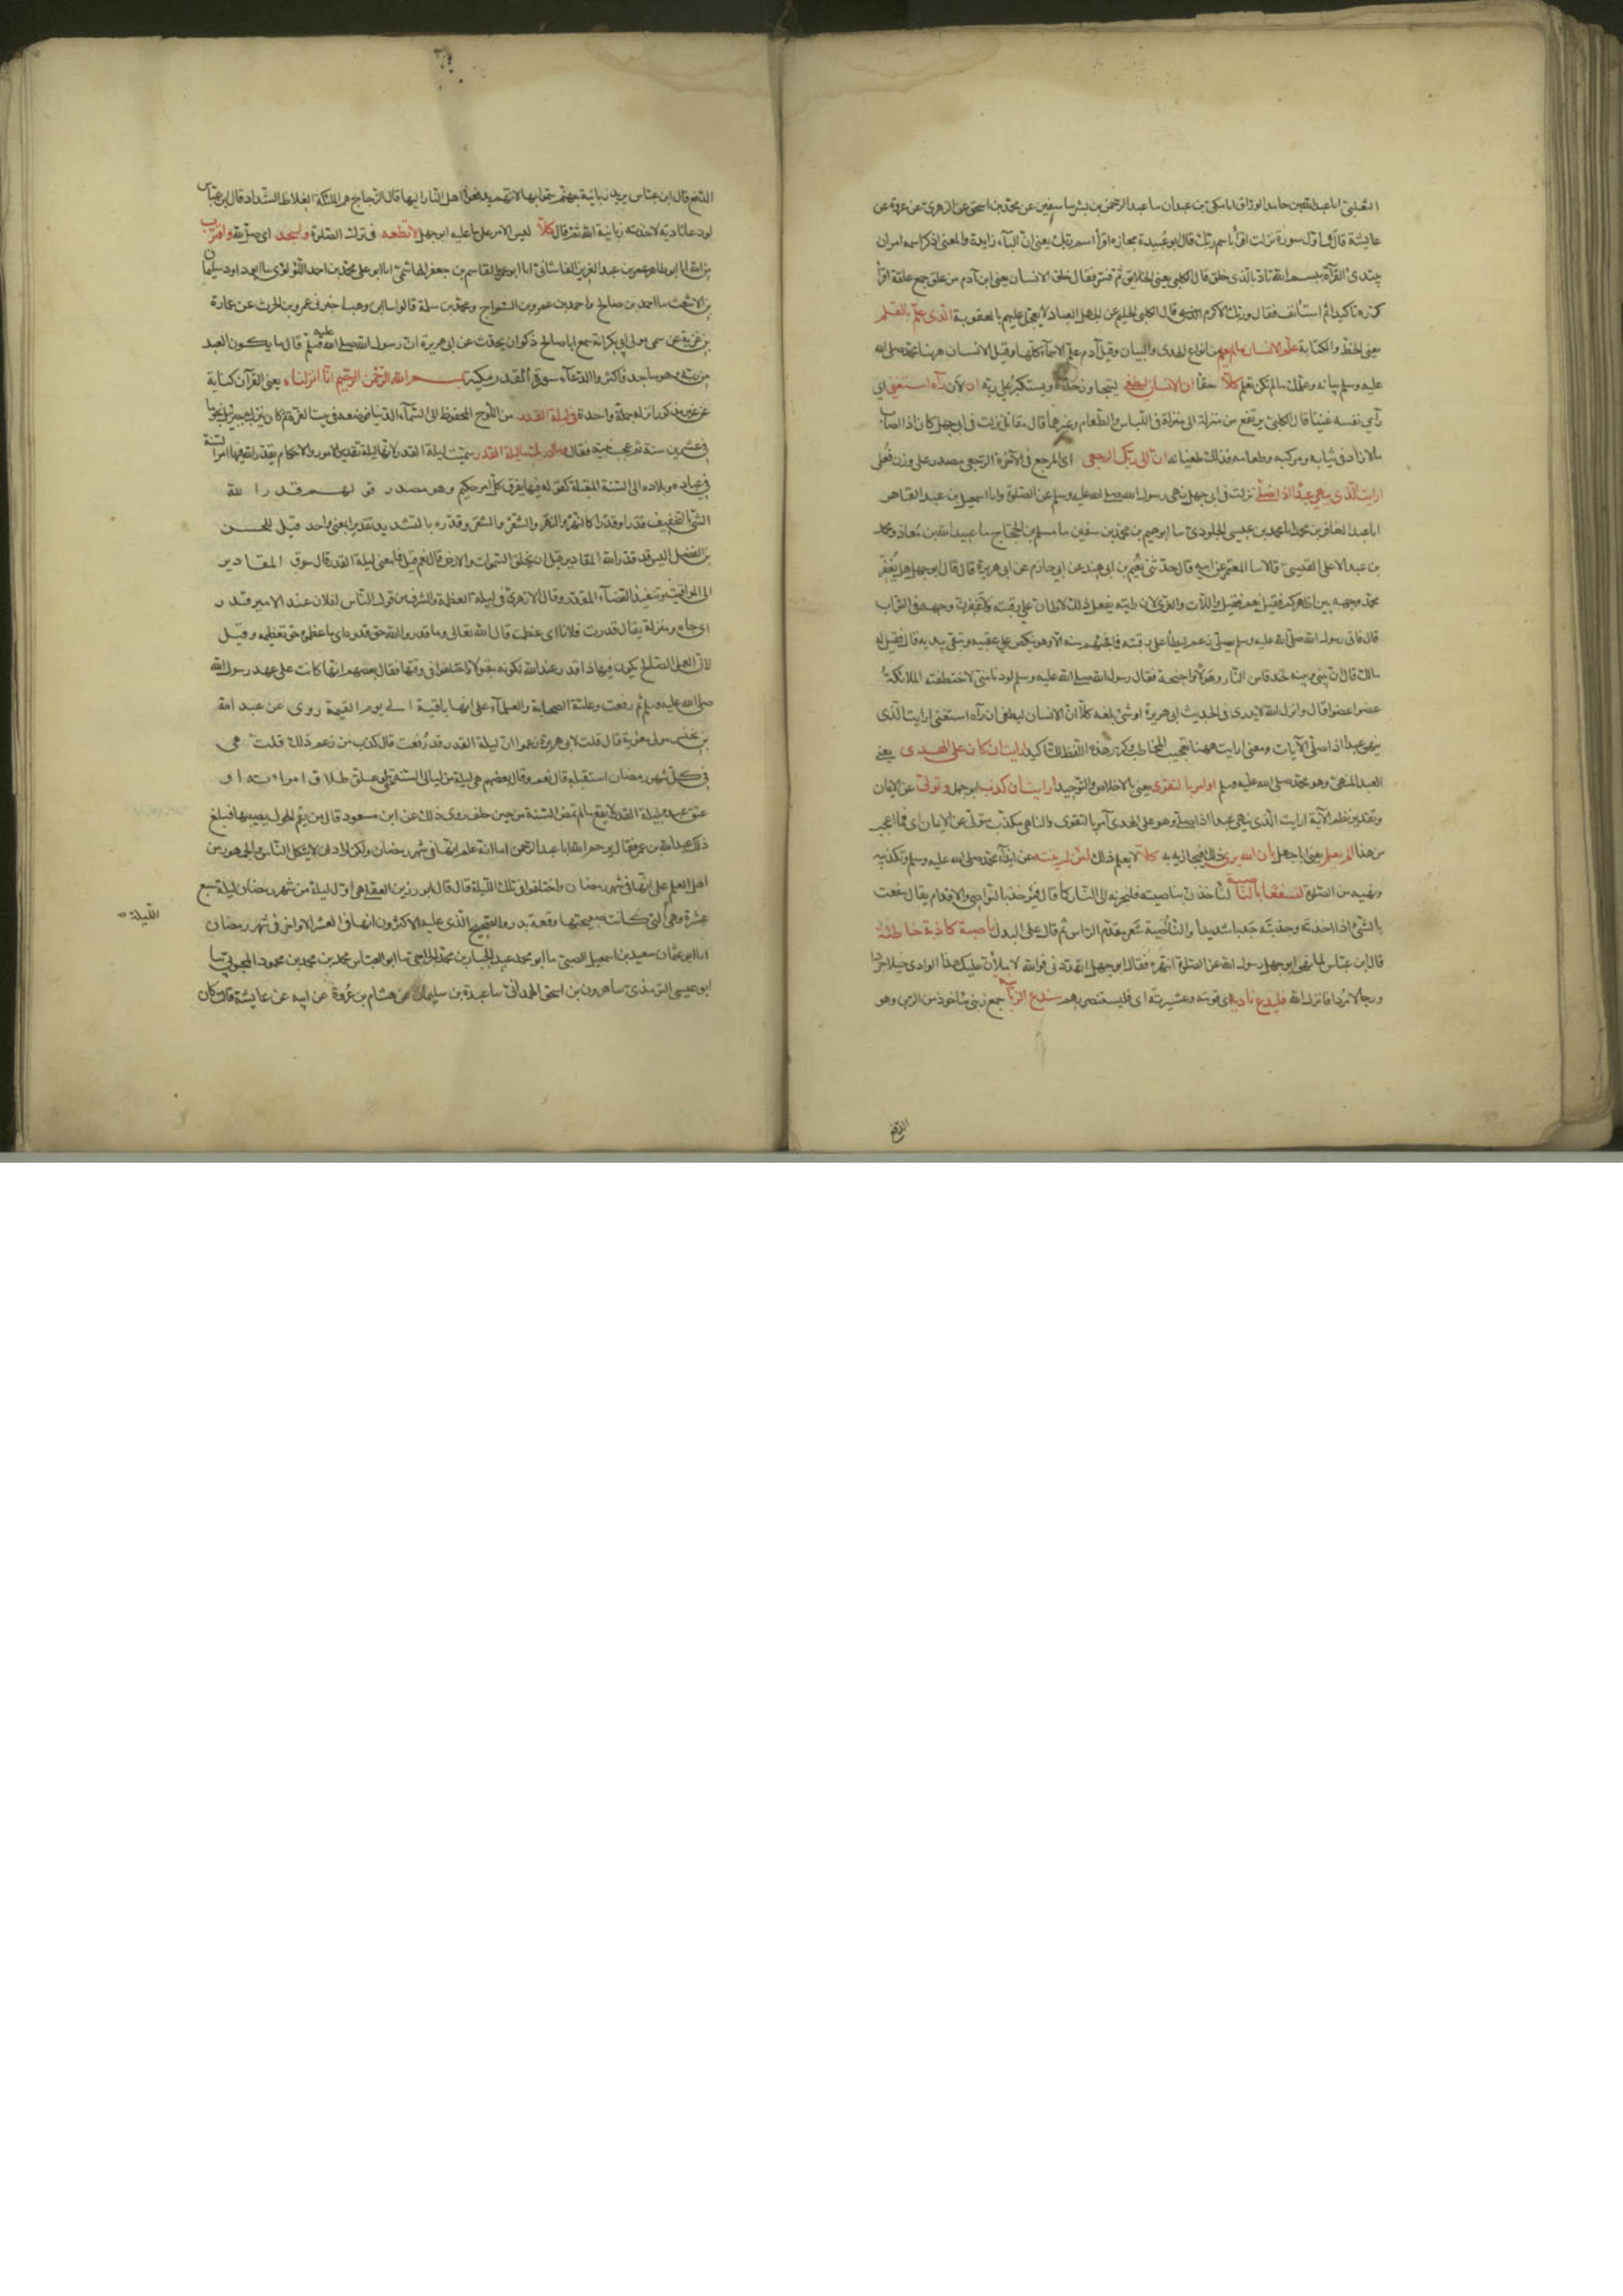 الثعلبي انا عبد الله بن حامد الوراق انا مكي بن عبدان سا عبد الرحمن بن بشر سا سفين عن محمد بن اسحق عن الزهري عن عروة عن
عايشة قالت اول سورة نزلت اقرأ باسم ربك قال ابو عبيدة مجازه اقرأ اسم ربك يعني ان الباء زايدة والمعنى اذكر اسمه امر ان
يبتدئ القرآة ببسم الله تاذبا الذي خلق قال الكلبي يعني الخلايق ثم فسر فقال خلق الانسان يعني ابن آدم من علق جمع علقة اقرأ
كرره تاكيدا ثم استأنف فقال وربك الاكرم قال الكلبي الحليم عن جهل العباد لا يعجل عليهم بالعقوبة الذي علم بالقلم
يعني الخط والكتابة علم الانسان ما لم يعلم من انواع الهدى والبيان وقيل آدم علم الاسماء كلها وقيل الانسان ههنا محمد صلى الله
عليه وسلم بيانه وعلمك ما لم تكن تعلم كلا حقا ان الانسان ليطغى ليتجاوز حده ويستكبر على ربه ان لان رآه استغنى اي
رأى نفسه غنيا قال الكلبي يرتفع من منزلة الى منزلة في اللباس والطعام وغيرهما قال مقاتل نزلت في ابي جهل كان اذا اصاب
مالا زاد في ثيابه ومركبه وطعامه فذلك طغيانه ان الى ربك الرجعى اي المرجع في الآخرة الرجعى مصدر على وزن فعلى
ارايت الذي ينهى عبدا اذا صلى نزلت في ابي جهل نهى رسول الله صلى الله عليه وسلم عن الصلوة وانا اسمعيل بن عبد القاهر
انا عبد الغافر بن محمد انا محمد بن عيسى الجلودي سا ابرهيم بن محمد بن سفين سا مسلم بن الحجاج سا عبيد الله بن معاذ ومحمد
بن عبد الاعلى القيسي قالا سا المعتمر عن ابيه قال حدثني نعيم بن ابي هند عن ابي حازم عن ابي هريرة قال قال ابو جهل هل يعفر
محمد وجهه بين اظهركم فقيل نعم فقيل واللات والعزى لان رايته يفعل ذلك لاطأن على رقبته ولاعفرن وجهه في التراب
قال فاتى رسول الله صلى الله عليه وسلم وهو يصلي زعم ليطأ على رقبته فما فجئهم منه الا وهو ينكص على عقبيه ويتقي بيديه قال فقيل له
مالك قال ان بيني وبينه لخندقا من النار وهولا واجنحة فقال رسول الله صلى الله عليه وسلم لو دنا مني لاختطفته الملائكة
عضوا عضوا قال وانزل الله لا يدري في الحديث ابي هريرة او شئ بلغه كلا ان الانسان ليطغى ان رآه استغنى ارايت الذي
ينهى عبدا اذا صلى الآيات ومعنى ارايت ههنا تعجيب المخاطب وكرر هذه اللفظة للتاكيد ارايت ان كان على الهدى يعني
العبد المنهي وهو محمد صلى الله عليه وسلم او امر بالتقوى يعني بالاخلاص والتوحيد ارايت ان كذب ابو جهل وتولى عن الايمان
وتقدير نظم الآية ارايت الذي ينهى عبدا اذا صلى وهو على الهدى آمر بالتقوى والناهي مكذب متولي عن الايمان اي فما اعجب
من هذا الم يعلم يعني ابا جهل بان الله يرى ذلك فيجازيه به كلا لا يعلم ذلك لئن لم ينته عن ايذاء محمد صلى الله عليه وسلم وتكذيبه
ونهيه عن الصلوة لنسفعا بالناصية لناخذن بناصيته فلنجرنه الى النار كما قال فيؤخذ بالنواصي والاقدام يقال سفعت
بالشئ اذا اخذته وجذبته جذبا شديدا والناصية شعر مقدم الراس ثم قال على البدل ناصية كاذبة خاطئة
قال ابن عباس لما نهى ابو جهل رسول الله عن الصلوة انتهره فقال ابو جهل اتهددني فوالله لاملأن عليك هذا الوادي خيلا جردا
ورجالا مردا فانزل الله فليدع ناديه اي قومه وعشيرته اي فليستنصر بهم سندع الزبانية جمع زبني ماخوذ من الزبن وهو
الدفع
الدفع قال ابن عباس يريد زبانية جهنم سموا بها لانهم يدفعون اهل النار اليها قال الزجاج هم الملئكة الغلاظ الشداد قال ابن عباس
لو دعا ناديه لاخذته زبانية الله ثم قال كلا ليس الامر على ما عليه ابو جهل لا تطعه في ترك الصلوة واسجد اي صل لله واقترب
من الله انا ابو طاهر عمر بن عبد العزيز القاشاني انا ابو عمر القاسم بن جعفر الهاشمي انا ابو علي محمد بن احمد اللؤلؤي سا ابو داود سليمان
بن الاشعث سا احمد بن صالح واحمد بن عمرو بن السراج ومحمد بن سلمة قالوا سا ابن وهب اخبرني عمرو بن الحرث عن عمارة
بن غزية عن سمي مولى ابي بكر انه سمع ابا صالح ذكوان يحدث عن ابي هريرة ان رسول الله صلى الله عليه وسلم قال ما يكون العبد
من ربه وهو ساجد فاكثروا الدعاء سورة القدر مكية بسم الله الرحمن الرحيم انا انزلناه يعني القرآن كناية
عن غير مذكور انزله جملة واحدة في ليلة القدر من اللوح المحفوظ الى السماء الدنيا فوضعه في بيت العزة ثم كان ينزل به جبرئيل نجوما
في عشرين سنة ثم عجب نبيه فقال وما ادريك ما ليلة القدر سميت ليلة القدر لانها ليلة تقدير الامور والاحكام يقدر الله فيها امر السنة
في عباده وبلاده الى السنة المقبلة كقوله فيها يفرق كل امر حكيم وهو مصدر قولهم قدر الله
الشئ بالتخفيف قدرا وقدرا كالنهر والنهر والشعر والشعر وقدره بالتشديد تقديرا بمعنى واحد قيل للحسين
بن الفضل اليس قد قدر الله المقادير قبل ان يخلق السموات والارض قال نعم قيل فما معنى ليلة القدر قال سوق المقادير
الى المواقيت وتنفيذ القضاء المقدر وقال الازهري في ليلة العظمة والشرف من قول الناس لفلان عند الامير قدر
اي جاه ومنزلة يقال قدرت فلانا اي عظمته قال الله تعالى وما قدروا الله حق قدره اي ما عظموه حق تعظيمه وقيل
لان العمل الصالح يكون فيها ذا قدر عند الله لكونه مقبولا واختلفوا في وقتها فقال بعضهم انها كانت على عهد رسول الله
صلى الله عليه وسلم ثم رفعت وعامة الصحابة والعلماء على انها باقية الى يوم القيمة روي عن عبد الله
بن يحنس مولى معوية قال قلت لابي هريرة زعموا ان ليلة القدر قد رفعت قال كذب من زعم ذلك قلت هي
في كل شهر رمضان استقبله قال نعم وقال بعضهم هي ليلة من ليالي السنة حتى لو علق طلاق امراته او
عتق عبده بليلة القدر لا يقع ما لم تمض السنة من حين حلف روي ذلك عن ابن مسعود قال من يقم الحول يصيبها فبلغ
ذلك عبد الله بن عمر فقال يرحم الله ابا عبد الرحمن اما انه علم انها في شهر رمضان ولكن اراد ان لا يتكل الناس والجمهور من
اهل العلم على انها في شهر رمضان واختلفوا في تلك الليلة قال قال ابو رزين العقيلي هي اول ليلة من شهر رمضان ليلة سبع
عشرة وهي التي كانت صبيحتها وقعة بدر والصحيح الذي عليه الاكثرون انها في العشر الاواخر في شهر رمضان
الليلة
انا ابو عثمان سعيد بن اسمعيل الضبي سا ابو محمد عبد الجبار بن محمد الجراحي سا ابو العباس محمد بن محمد بن محمود المحبوبي سا
ابو عيسى الترمذي سا هرون بن اسحق الهمداني سا عبدة بن سليمان عن هشام بن عروة عن ابيه عن عايشة قالت كان